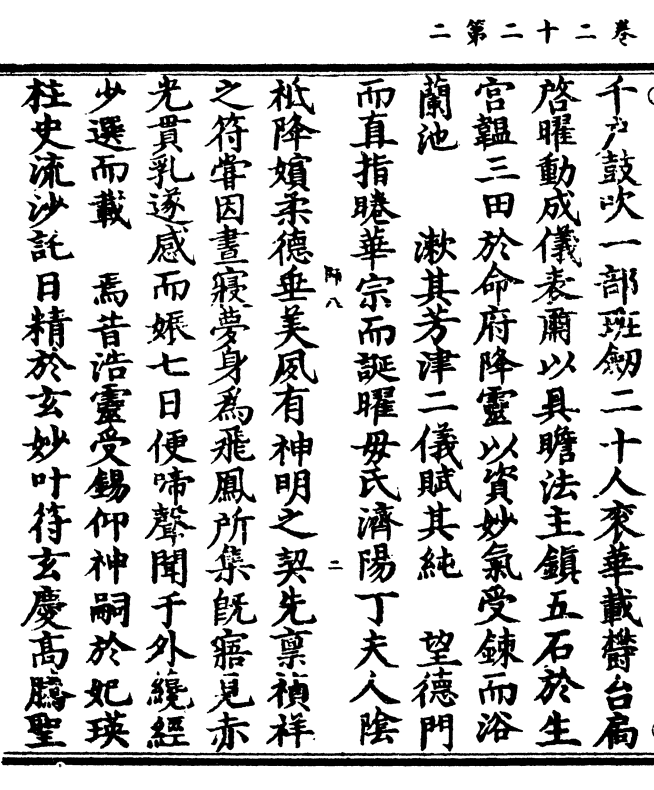 卷二十二第二
千户鼓吹一部班劒二十人衮華載欝台扃
啓曜動成儀表爾以具瞻法主鎮五石於生
宮韞三田於命府降靈以資妙氣受鍊而浴
蘭池　漱其芳津二儀賦其純　望德門
而直指睠華宗而誕曜毋氏濟陽丁夫人陰
師八　二
祗降嬪柔德垂美夙有神明之契先禀禎祥
之符甞因晝寢夢身為飛鳳所集旣寤見赤
光貫乳遂感而娠七日便啼聲聞于外纔經
少選而載　焉昔浩靈受錫仰神嗣於妃瑛
柱史流沙託日精於玄妙叶符玄慶高騰聖